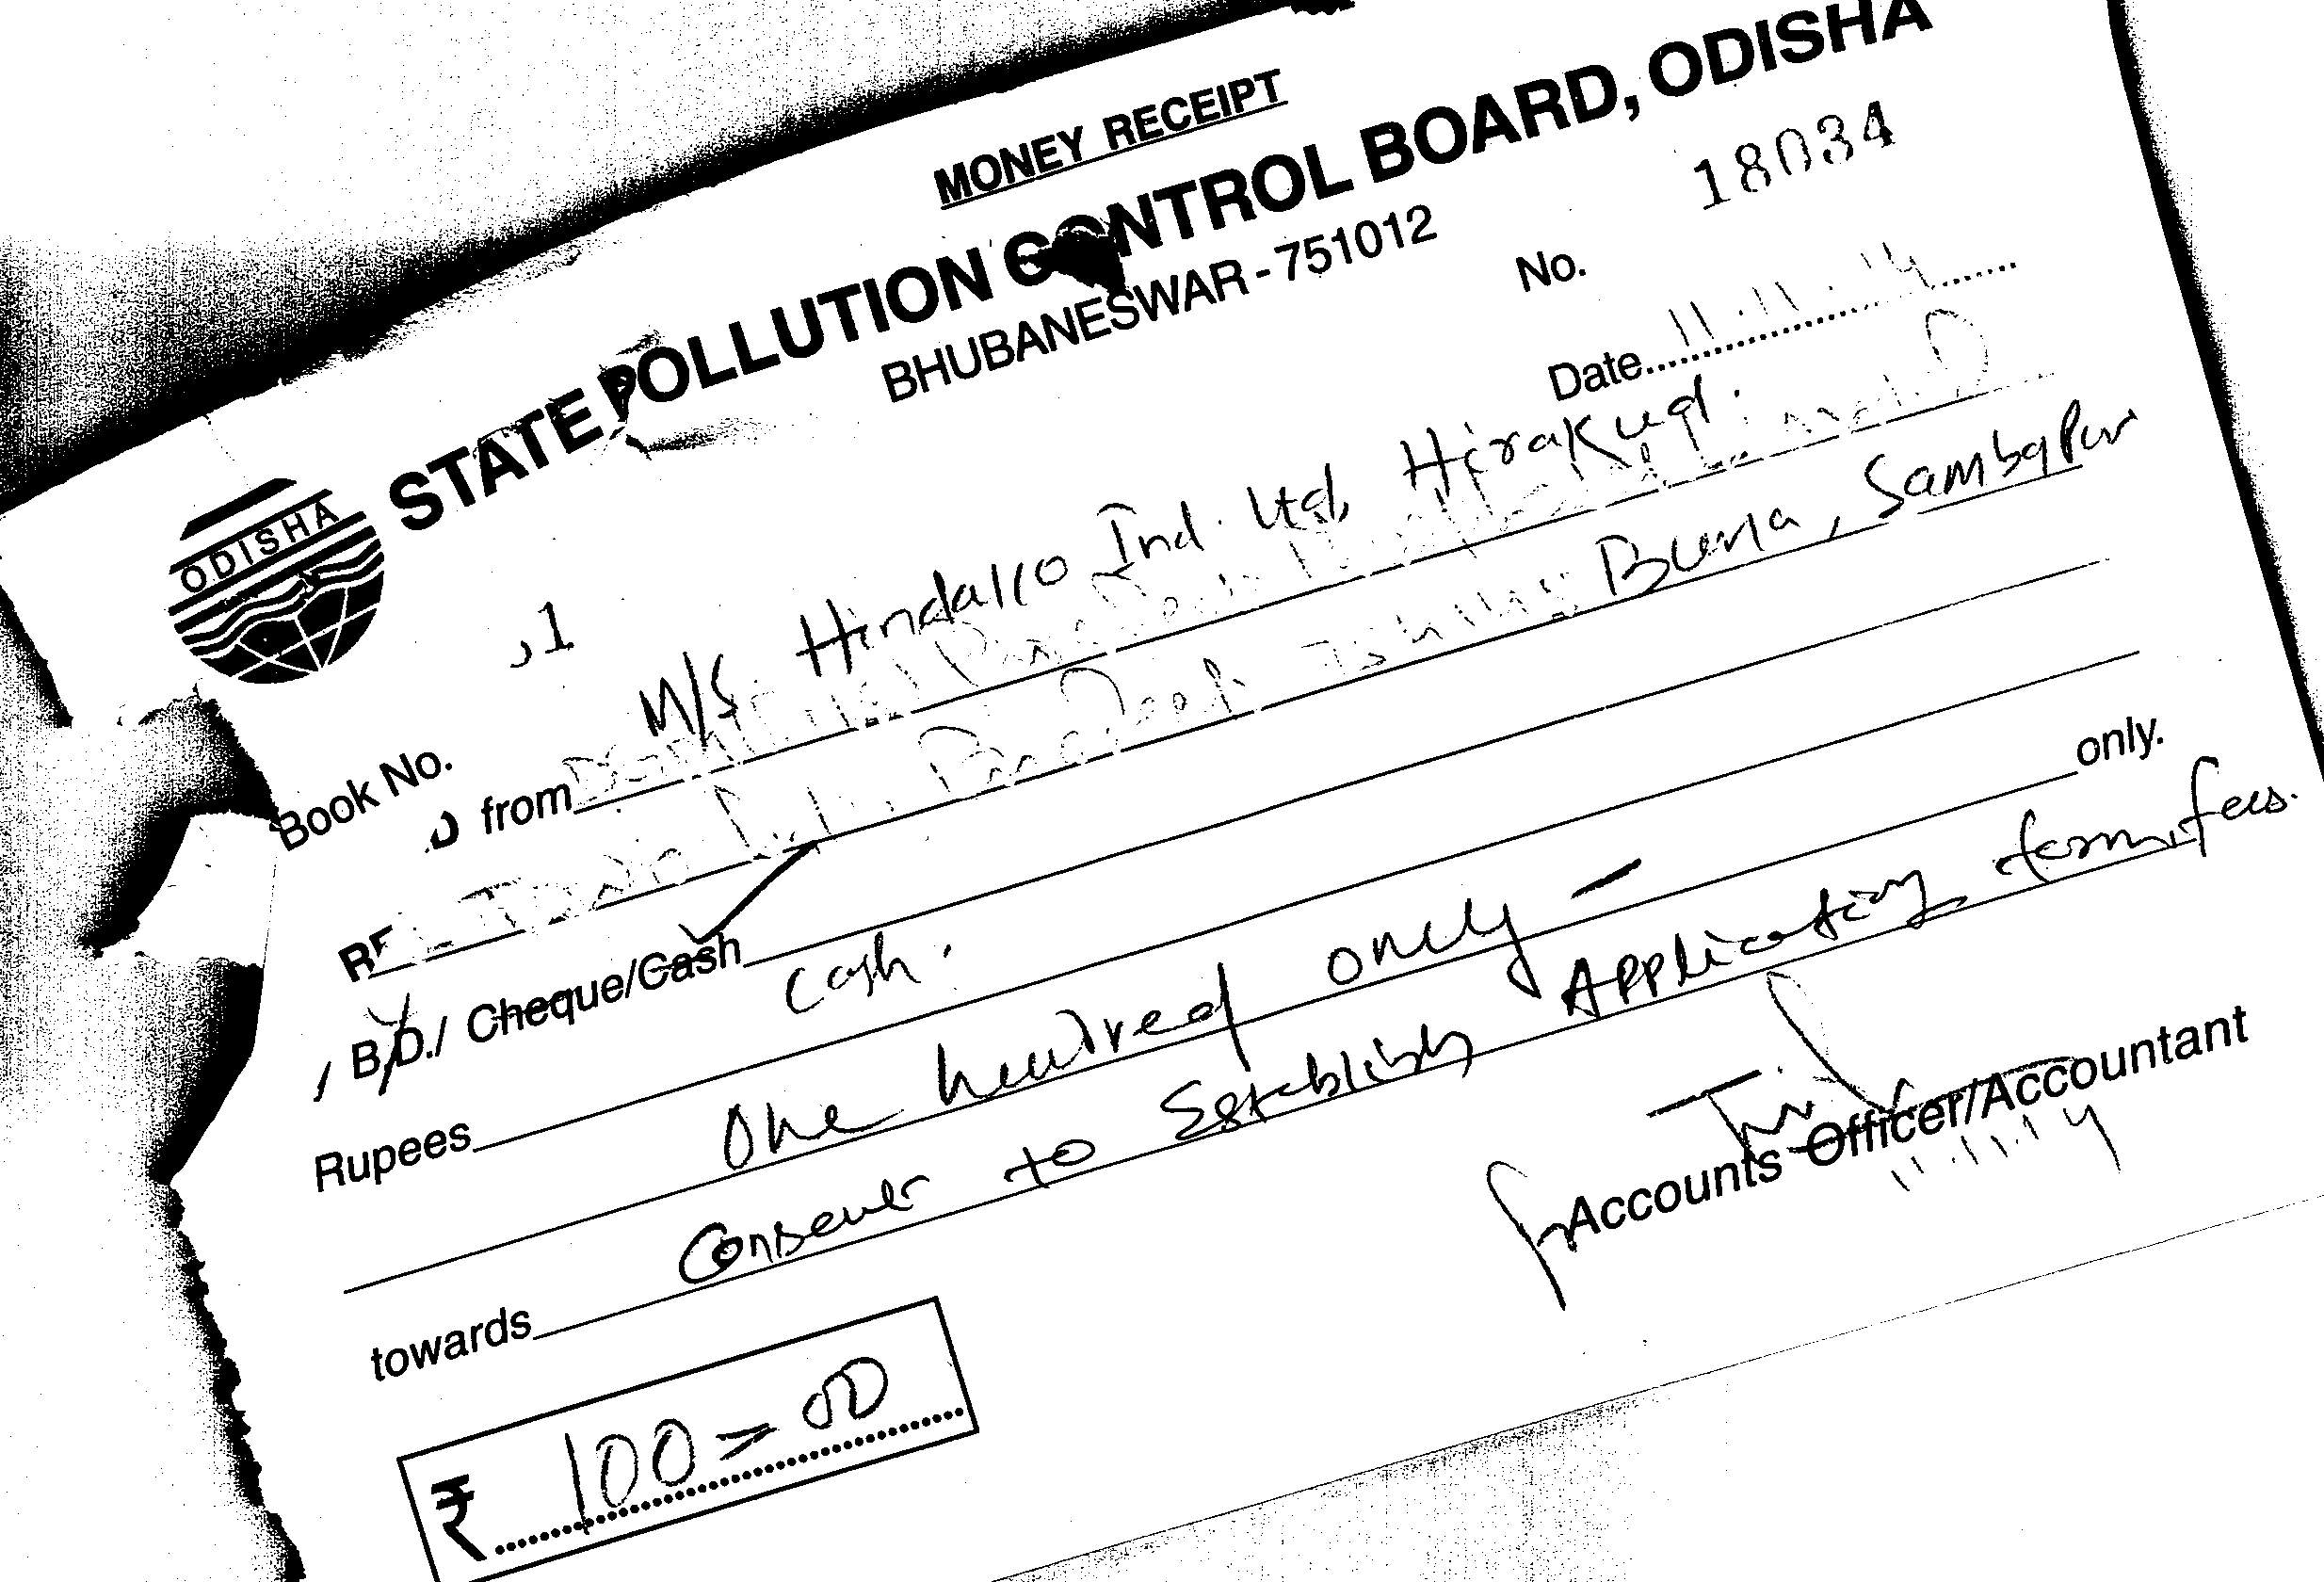 MONEY RECEIPT
STATE POLLUTION CONTROL BOARD, ODISHA
BHUBANESWAR - 751012
ODISHA
Book No. 1
No. 18034
Date 11.11.14
M/s Hindalco Ind. Ltd, Hirakud.
from
Burla, Sambalpur
B.D./ Cheque/Cash Cash.
Rupees One hundred only — only.
towards Consent to Establish Application form fees.
₹ 100=00
Accounts Officer/Accountant
11.11.14